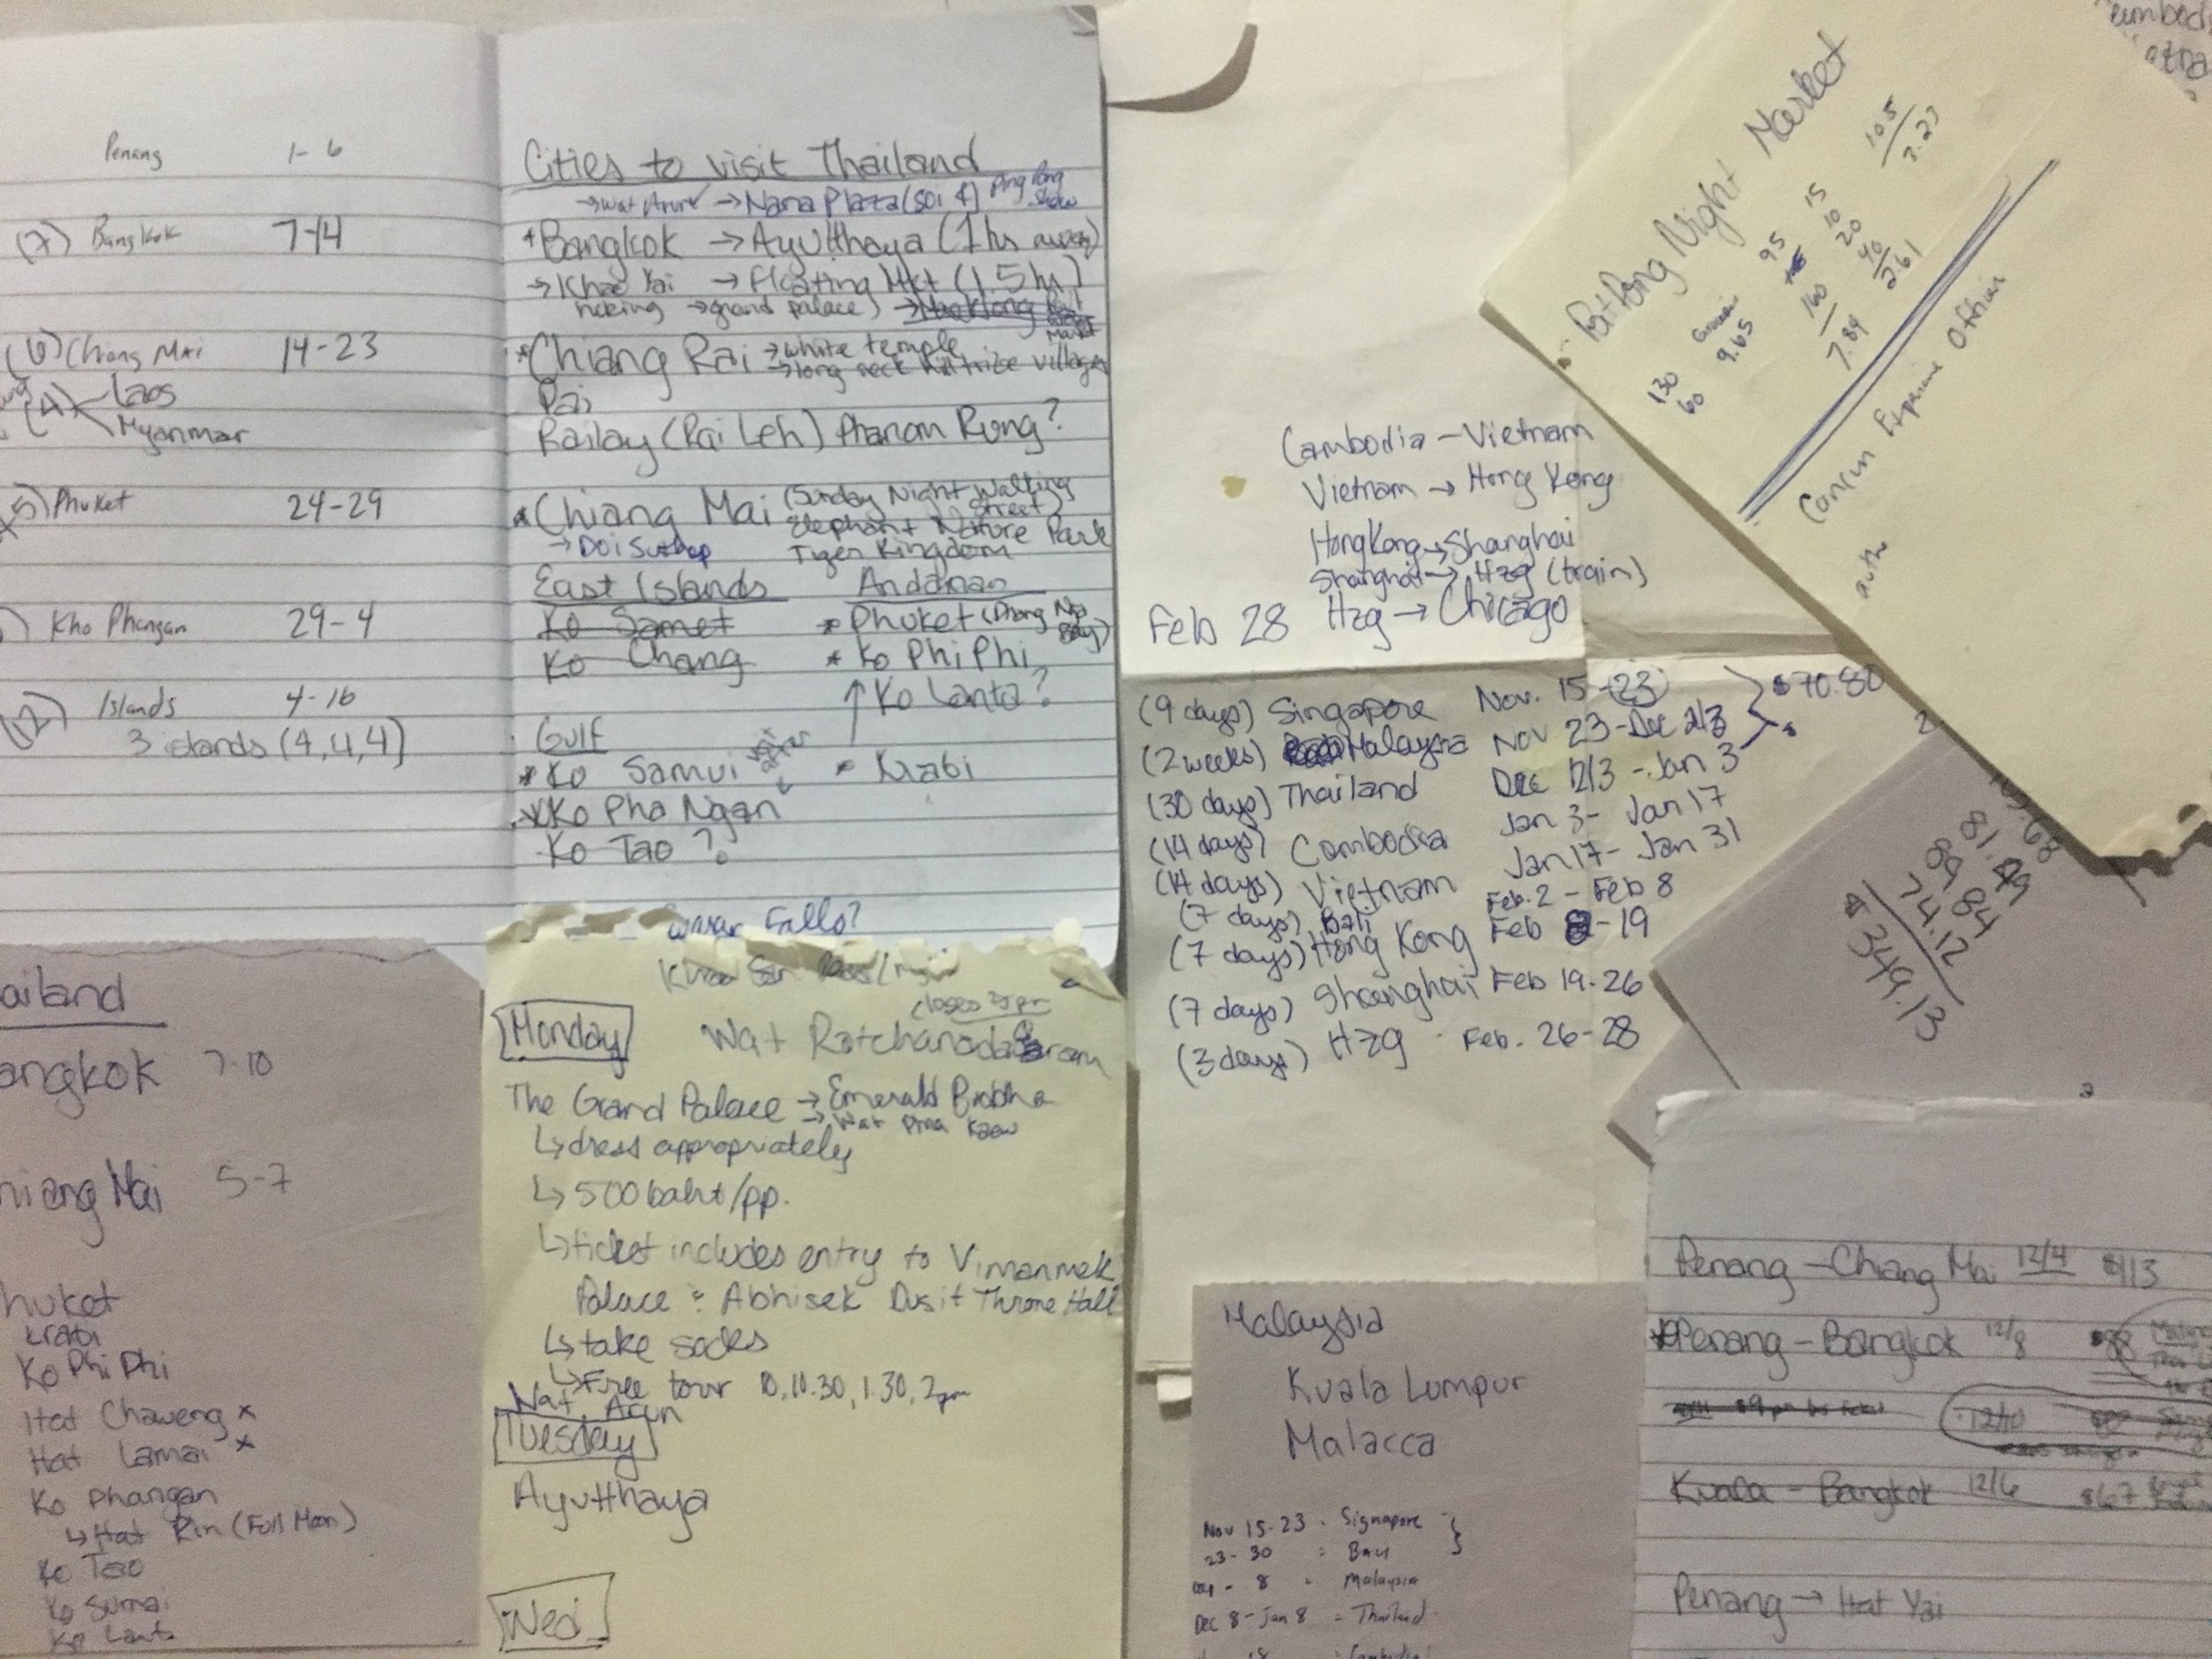 Penang 1-6
(7) Bangkok 7-14
(6) Chiang Mai 14-23
(4) Laos
Myanmar
5) Phuket 24-29
) Kho Phangan 29-4
(12) Islands 4-16
3 islands (4,4,4)
Cities to visit Thailand
→ Wat Arun → Nana Plaza (Soi 4) Ping Pong Show
*Bangkok → Ayutthaya (1 hrs away)
→ Khao Yai → Floating Mkt (1.5 hr)
→ grand palace
*Chiang Rai → white temple
→ long neck hilltribe village
Pai
Railay (Rai Leh) Phanom Rung?
*Chiang Mai (Sunday Night Walking Street)
→ Doi Suthep Elephant Nature Park
Tiger Kingdom
East Islands Andaman
Ko Samet * Phuket (Phang Nga Bay)
Ko Chang * Ko Phi Phi
↑ Ko Lanta?
Gulf
*Ko Samui * Krabi
*Ko Pha Ngan
Ko Tao?
Falls?
ailand
angkok 7-10
hiang Mai 5-7
huket
Krabi
Ko Phi Phi
Hat Chaweng x
Hat Lamai x
Ko Phangan
↳ Hat Rin (Full Moon)
Ko Tao
Ko Sumai
Ko Lanta
Monday
The Grand Palace → Emerald
→ Wat Kaew
↳ dress appropriately
↳ 500 baht/pp.
↳ ticket includes entry to Vimanmek
Palace : Abhisek Dusit Throne Hall
↳ take socks
↳ Free tour 10, 10.30, 1.30, 2pm
Wat Arun
Tuesday
Ayutthaya
Wed
Cambodia - Vietnam
Vietnam → Hong Kong
Hong Kong → Shanghai
Shanghai → Hzg (train)
Feb 28 Hzg → Chicago
(9 days) Singapore Nov. 15-23 $70.80
(2 weeks) Malaysia Nov 23-Dec 2/3
(30 days) Thailand Dec 2/3 - Jan 3
(14 days) Cambodia Jan 3- Jan 17
(14 days) Vietnam Jan 17- Jan 31
(7 days) Bali Feb. 2 - Feb 8
(7 days) Hong Kong Feb 8-19
(7 days) Shanghai Feb 19-26
(3 days) Hzg Feb. 26-28
Patpong Night Market
105
3.23
15
10
20
40
261
95
160
7.84
9.65
130
60
Officer
81.49
89.84
74.12
$349.13
Malaysia
Kuala Lumpur
Malacca
Nov 15-23 - Signapore
23-30 : Bali
- 8 - Malaysia
Dec 8-Jan 8 = Thailand
Penang - Chiang Mai 12/4 $113
*Penang - Bangkok 12/8
Kuala - Bangkok 12/6 $67
Penang → Hat Yai